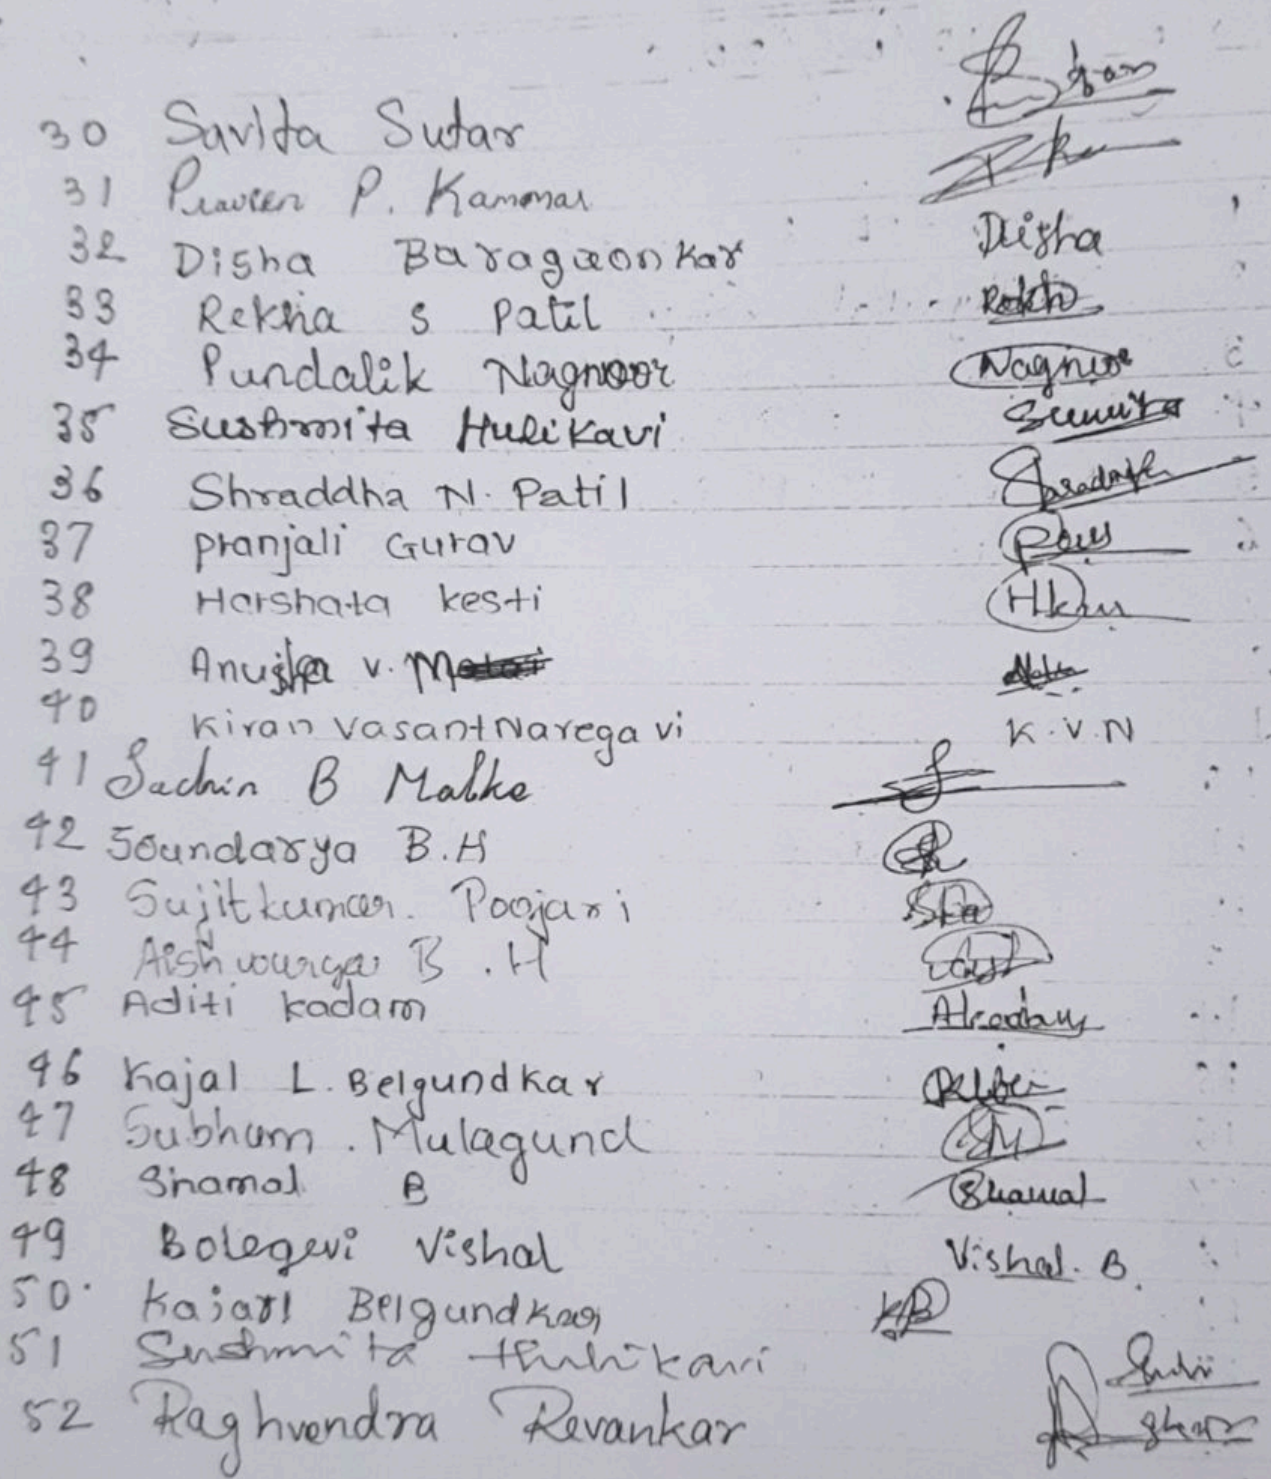 30 Savita Sutar
31 Praveen P. Kammar
32 Disha Baragaonkar Disha
33 Rekha S Patil Rekh
34 Pundalik Nagnoor Nagnur
35 Sushmita Hulikavi
36 Shraddha N. Patil
37 Pranjali Gurav
38 Harshata kesti
39 Anusha V.
40 Kiran Vasant Naregavi K.V.N
41 Sachin B Malke
42 Soundarya B.H
43 Sujitkumar. Poojari
44 Aishwarya B.H
45 Aditi kadam
46 Kajal L. Belgundkar
47 Subham. Mulagund SM
48 Shamal B Shamal
49 Bolegevi Vishal Vishal. B.
50. Belgundkar KB
51 Sushmita Hulikavi
52 Raghvendra Revankar